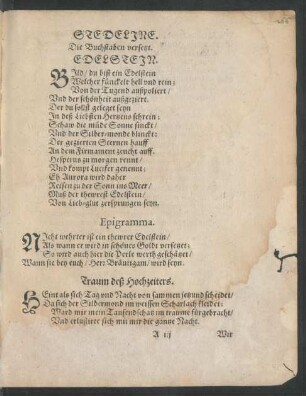 STEDELINE.
Die Buchstaben versetzt.
EDELSTEIN.
Bild/ du bist ein Edelstein
Welcher fünckelt hell vnd rein;
Von der Tugend außpoliert/
Vnd der schönheit außgeziert.
Der du sollst geleget seyn
In deß Liebsten Hertzens schrein;
Schaw die müde Sonne sinckt/
Vnd der Silber-monde blinckt:
Der gezierten Sternen hauff
An dem Firmament zeucht auff.
Hesperus zu morgen rennt/
Vnd kompt Lucifer genennt;
Eh Aurora wird daher
Reisen zu der Sonn ins Meer/
Muß der thewrest Edelstein/
Von Lieb-glut zersprungen seyn.
Epigramma.
Nicht wehrter ist ein thewrer Edelstein/
Als wann er wird in schönes Goldt versetzet;
So wird auch hier die Perle werth geschätzet/
Wann sie bey euch/ Herr Bräutigam/ wird seyn.
Traum deß Hochzeiters.
Heint als sich Tag vnd Nacht von sammen
Da sich der Silbermond im weissen Scharlach kleidet:
Ward mir mein Tausendschatz im traume fürgebracht/
Vnd erlustirte sich mit mir die gantze Nacht.
A ij Wir